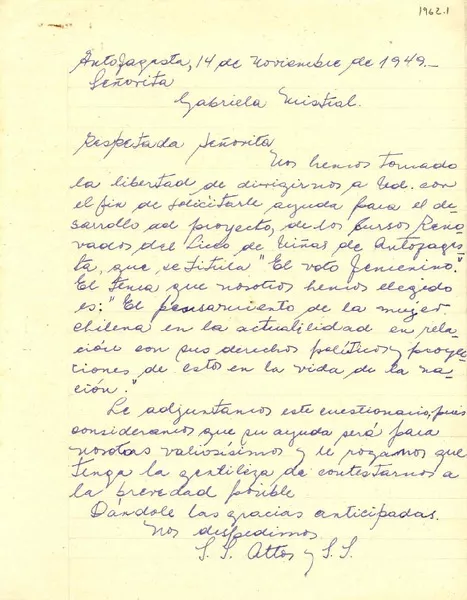 1962.1
Antofagasta, 14 de Noviembre de 1949.-
Señorita
Gabriela Mistral.
Respetada Señorita
Nos hemos tomado
la libertad de dirigirnos a Ud. con
el fin de solicitarle ayuda para el de-
sarrollo del proyecto, de los Cursos Reno-
vados del Liceo de Niñas de Antofagas-
ta, que se titula "El voto femenino."
El tema que nosotros hemos elegido
es: "El pensamiento de la mujer
chilena en la actualidad en rela-
ción con sus derechos políticos y proyec-
ciones de estos en la vida de la na-
ción."
Le adjuntamos este cuestionario, pues
consideramos que su ayuda será para
nosotas valiosísimos y le rogamos que
tenga la gentileza de contestarnos a
la brevedad posible
Dándole las gracias anticipadas.
Nos despedimos
S.S. Attos y S.S.